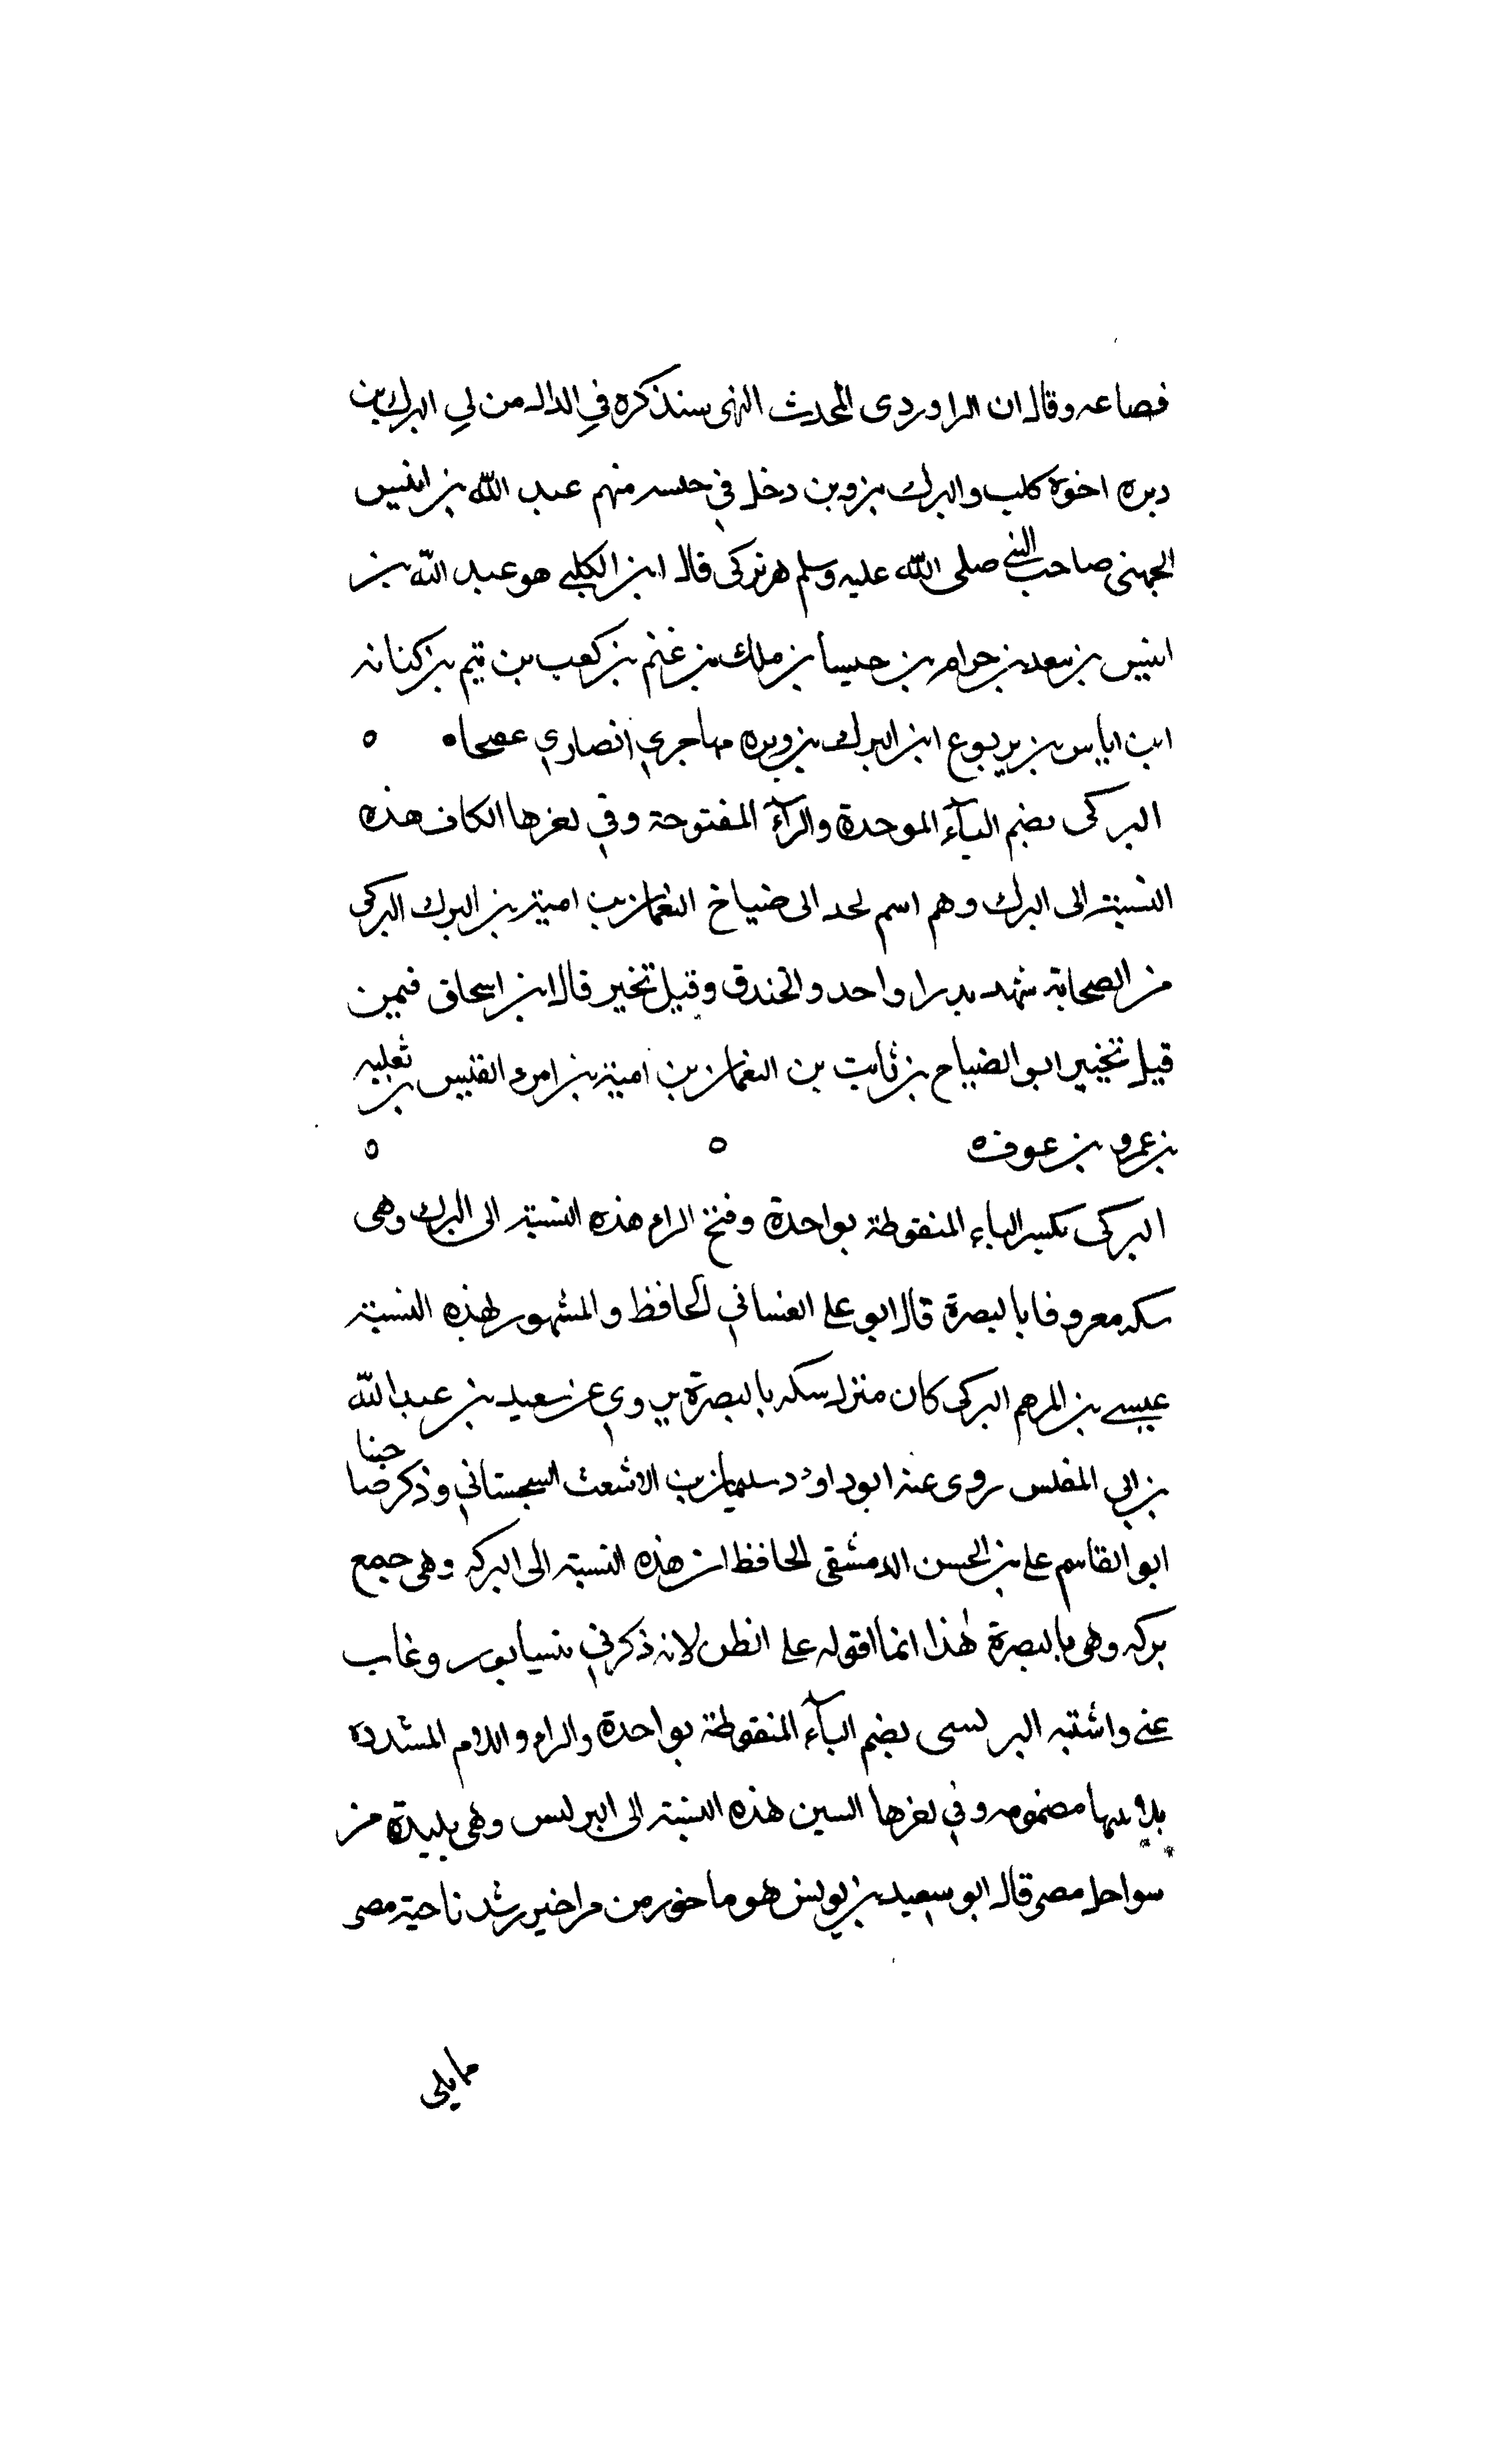 فصاعه وقال ان الراوردى المحدث الهى سنذكره في الدال من لي البرك بن
دبره اخوة كلب والبرك بن وبن دخل في جلسه منهم عبد الله بن انيس
الجهنى صاحب النبي صلى الله عليه وسلم هو تركى قال ابن الكلبي هو عبد الله بن
انيس بن سعد بن حرام بن حبيبا بن ملك بن غنم بن كعب بن تيم بن كنانه
ابن اياس بن يربوع ابن البرك بن وبره مهاجري انصاري عصحاه ه
البركى بضم الباء الموحدة والراء المفتوحة وفي لغزها الكاف هذه
النسبة الى البرك وهم اسم لحد الى ضياخ النعمان بن امية بن البرك البركى
من الصحابة شهد بدرا واحد والخندق وقيل تخير قال ابن اسحاق فيمن
قيل تخيبر ابو الضياح بن ثابت بن النعمان بن امية بن امرء القيس بن ثعلبه
بن عمرو بن عوف ه ه ه
البركى بكسر الباء المنقوطة بواحدة وفتح الراء هذه النسبة الى البرك وهى
سكه معروفا بالبصرة قال ابو على الغساني الحافظ والمشهور لهذه النسبة
عيسى بن المرهم البركى كان منزل سكه بالبصرة يروي عن سعيد بن عبد الله
بن ابي المفلس روى عنه ابو داود سليمان بن الاشعث السجستاني وذكر صاحبنا
ابو القاسم على بن الحسن الدمشقى الحافظ ان هذه النسبة الى البركه وهى جمع
بركه وهى بالبصرة لهذا انما اقوله على الظن لانه ذكر في نيسابور وغاب
عني واشتبه البرلسى بضم الباء المنقوطة بواحدة والراء واللام المشددة
مضمومه وفي لغزها السين هذه النسبة الى البرلس وهى بليدة من
سواحل مصر قال ابو سعيد بن يونس هو ماخور من مراخير رشد ناحية مصر
مايلى